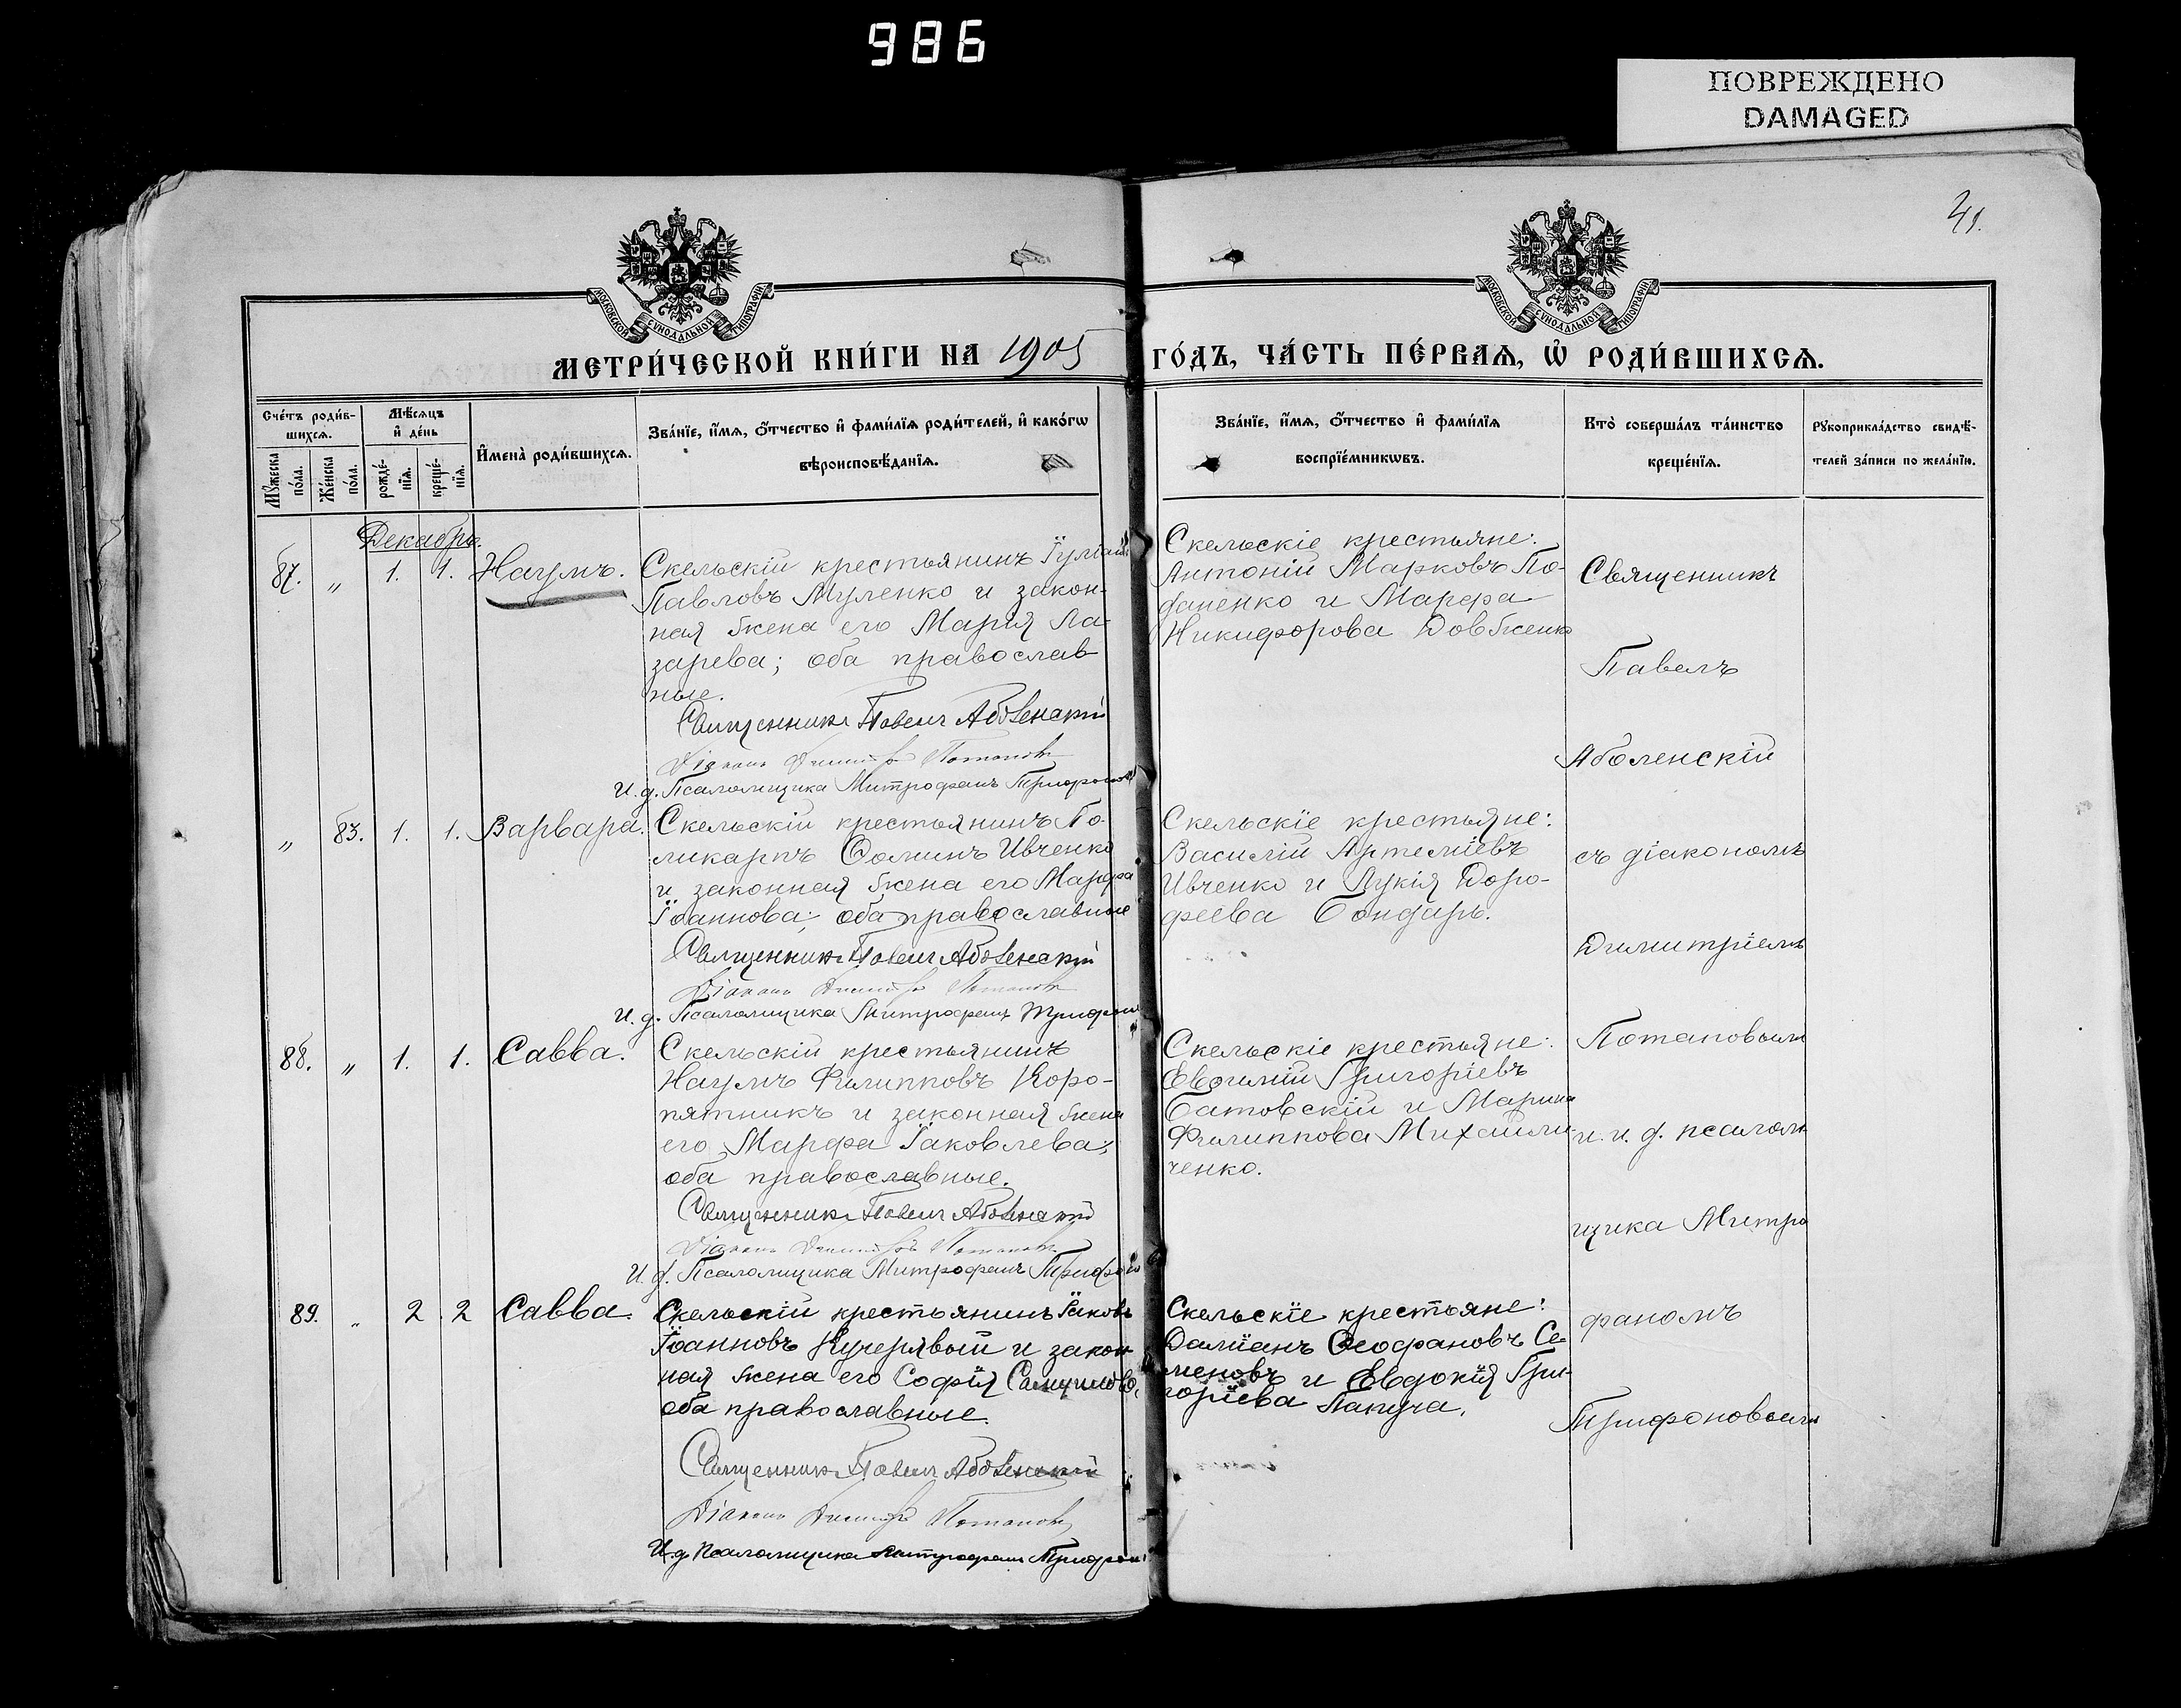 986
ПОВРЕЖДЕНО
DAMAGED
41.
МОСКОВСКОЙ СУНОДАЛЬНОЙ ТИПОГРАФІИ
МОСКОВСКОЙ СУНОДАЛЬНОЙ ТИПОГРАФІИ
МЕТРИ́ЧЕСКОЙ КНИ́ГИ НА 1905 ГО́ДЪ, ЧА́СТЬ ПЕ́РВАѦ, Ѡ҆ РОДИ́ВШИХСѦ.
Сче́тъ роди́в-
шихсѧ.
Мꙋ́жеска по́ла.
Же́нска по́ла.
Мѣ́сѧцъ
и҆ де́нь
рожде́-
нїѧ.
креще́-
нїѧ.
И҆мена̀ роди́вшихсѧ.
Зва́нїе, и҆́мѧ, ѻ҆́тчество и҆ фами́лїѧ роди́телей, и҆ како́гѡ
вѣроисповѣ́данїѧ.
Зва́нїе, и҆́мѧ, ѻ҆́тчество и҆ фами́лїѧ
воспрїе́мникѡвъ.
Кто̀ соверша́лъ та́инство
креще́нїѧ.
Рꙋкоприкла́дство свидѣ́-
телей за́писи по жела́нїю.
Декабрь.
87. „ 1. 1. Наумъ.
Скельскій крестьянинъ Іуліанъ
Павловъ Муленко и закон-
ная жена его Марія Ла-
зарева; оба православ
ные.
Священникъ Павелъ Аболенскій
Діаконъ Димитрій Потаповъ
И. д. Псаломщика Митрофанъ Трифоновъ
Скельскіе крестьяне:
Антоній Марковъ По-
фаненко и Марфа
Никифорова Довженко
„ 83. 1. 1. Варвара.
Скельскій крестьянинъ По-
ликарпъ Ѳоминъ Ивченко
и законная жена его Марфа
Іоаннова; оба православные
Священникъ Павелъ Аболенскій
Діаконъ Димитрій Потаповъ
И. д. Псаломщика Митрофанъ Трифон
Скельскіе крестьяне:
Василій Артеміевъ
Ивченко и Лукія Доро-
феева Бондарь.
88. „ 1. 1. Савва.
Скельскій крестьянинъ
Наумъ Филипповъ Коро-
пятникъ и законная жена
его Марфа Іаковлева;
оба православные.
Священникъ Павелъ Аболенскій
Діаконъ Димитрій Потаповъ
И. д. Псаломщика Митрофанъ Трифоно
Скельскіе крестьяне:
Евфимій Григоріевъ
Батовскій и Марина
Филиппова Михайли-
ченко.
89. „ 2 2 Савва.
Скельскій крестьянинъ Іаковъ
Іоанновъ Кучерявый и закон
ная жена его Софія Самуилова,
оба православные.
Священникъ Павелъ Аболенскій
Діаконъ Димитрій Потаповъ
И. д. Псаломщика Митрофанъ Трифон
Скельскіе крестьяне:
Даміанъ Ѳеофановъ Се-
меновъ и Евдокія Гри-
горіева Папуча.
Священникъ
Павелъ
Аболенскій
съ діакономъ
Димитріемъ
Потаповымъ
и и. д. псалом
щика Митро
фаномъ
Трифоновымъ